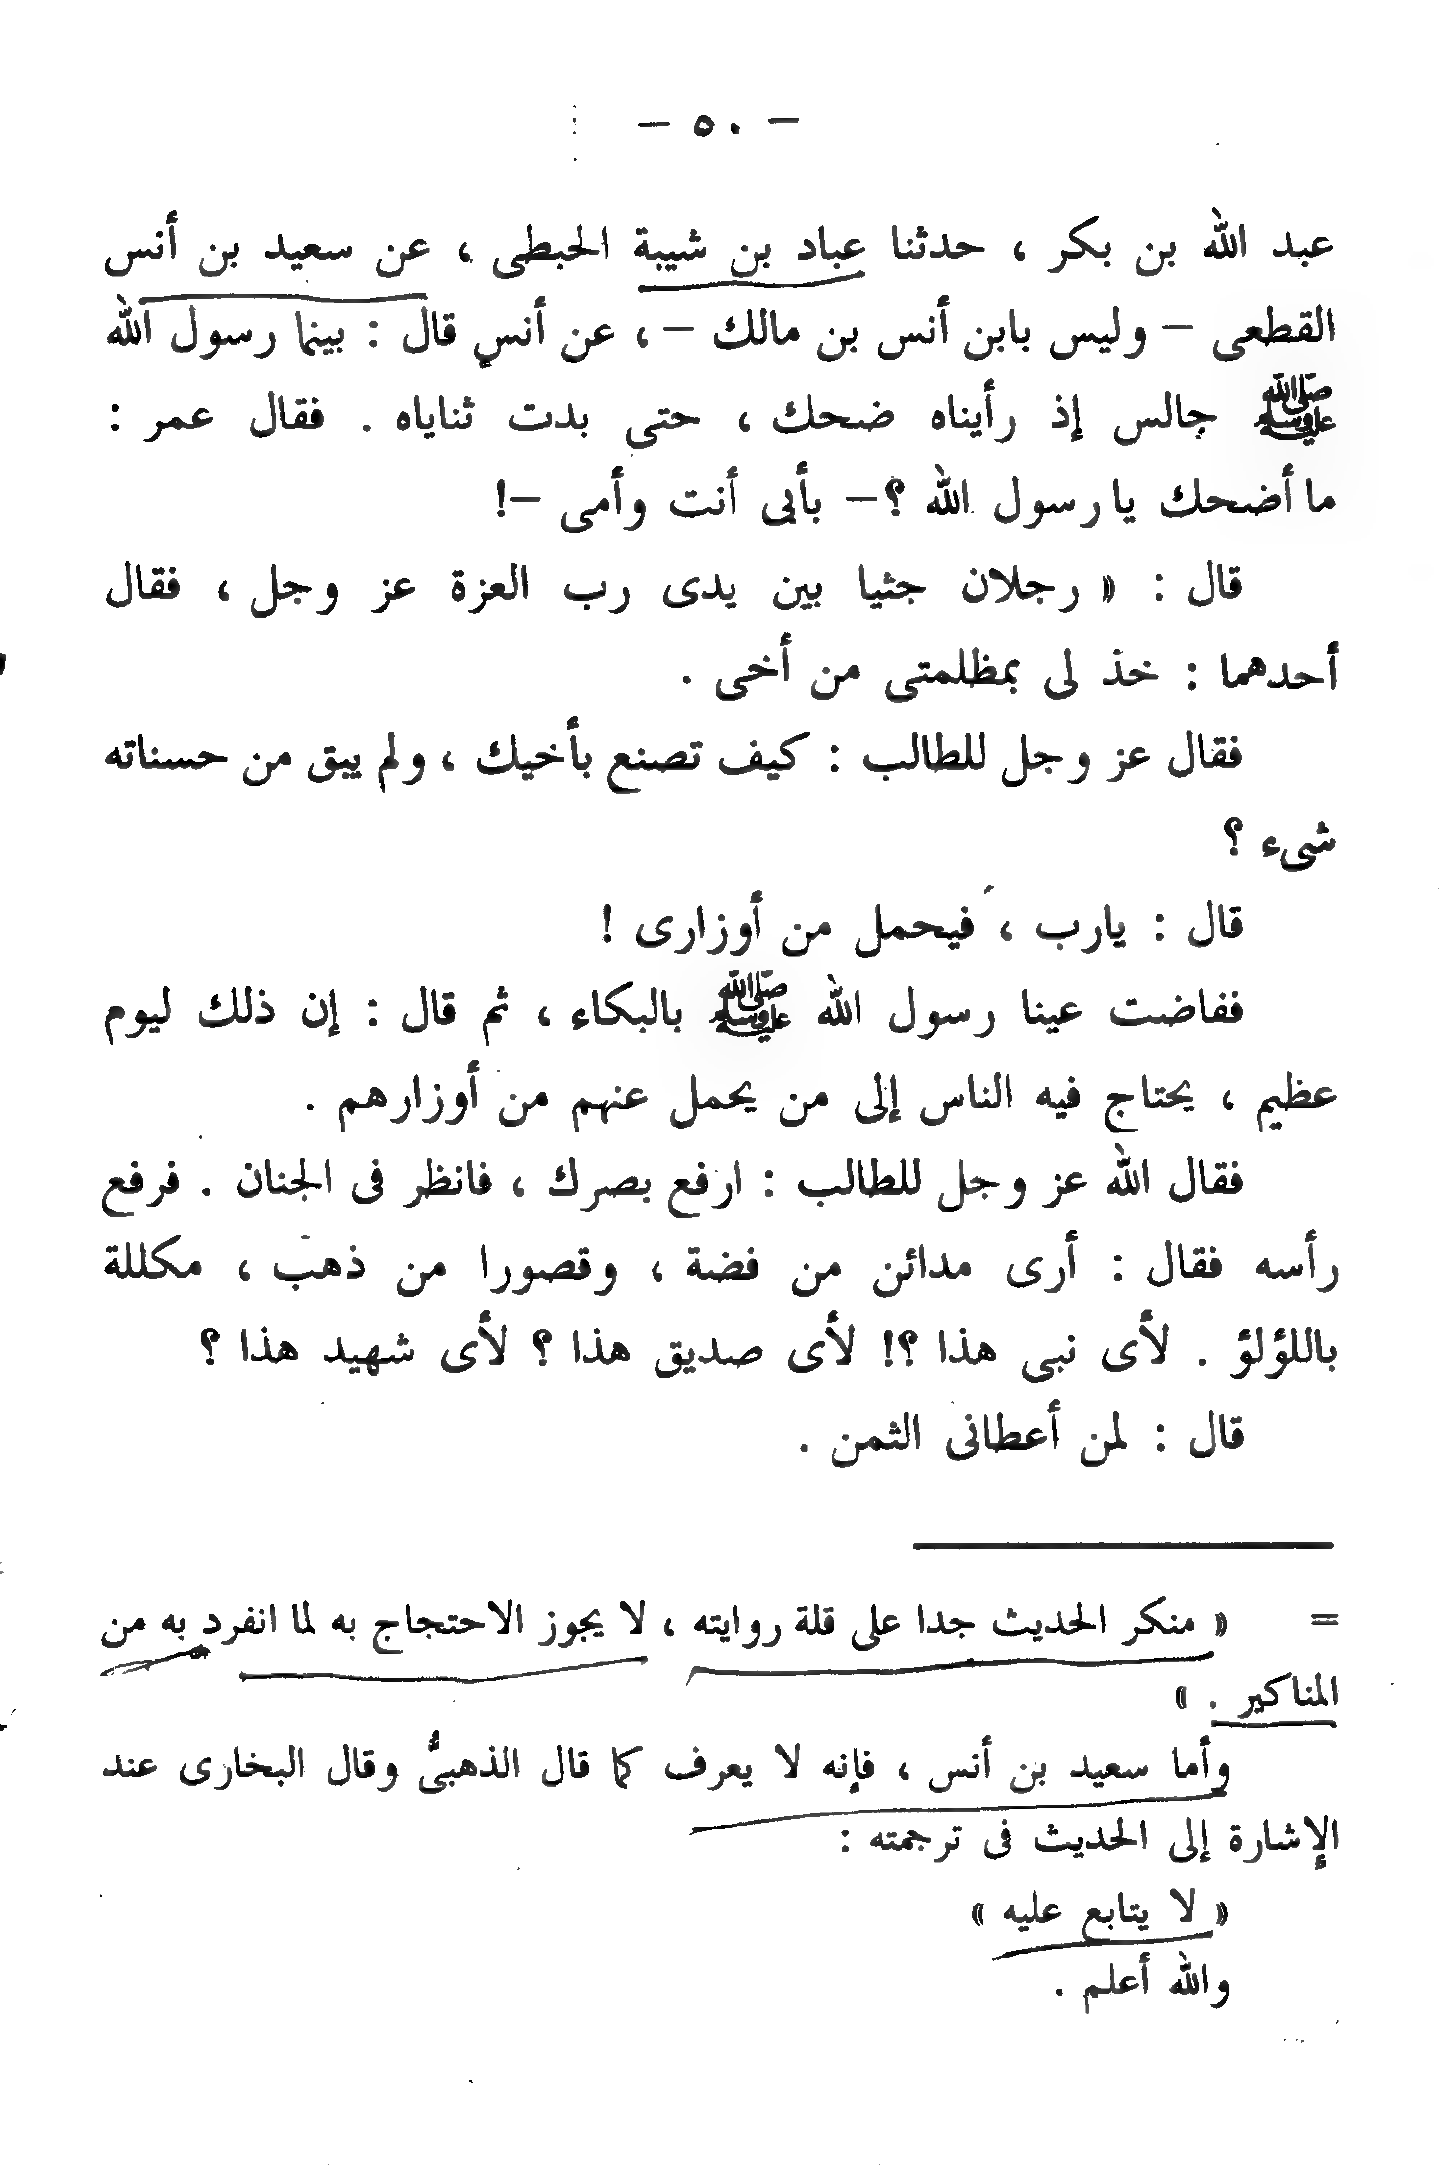 — ٥٠ —
عبد الله بن بكر ، حدثنا عباد بن شيبة الحبطى ، عن سعيد بن أنس
القطعى — وليس بابن أنس بن مالك — ، عن أنسٍ قال : بينما رسول الله
ﷺ جالس إذ رأيناه ضحك ، حتى بدت ثناياه . فقال عمر :
ما أضحك يا رسول الله ؟ — بأبى أنت وأمى — !
قال : « رجلان جثيا بين يدى رب العزة عز وجل ، فقال
أحدهما : خذ لى بمظلمتى من أخى .
فقال عز وجل للطالب : كيف تصنع بأخيك ، ولم يبق من حسناته
شىء ؟
قال : يارب ، فيحمل من أوزارى !
ففاضت عينا رسول الله ﷺ بالبكاء ، ثم قال : إن ذلك ليوم
عظيم ، يحتاج فيه الناس إلى من يحمل عنهم من أوزارهم .
فقال الله عز وجل للطالب : ارفع بصرك ، فانظر فى الجنان . فرفع
رأسه فقال : أرى مدائن من فضة ، وقصورا من ذهب ، مكللة
باللؤلؤ . لأى نبى هذا ؟! لأى صديق هذا ؟ لأى شهيد هذا ؟
قال : لمن أعطانى الثمن .
= « منكر الحديث جدا على قلة روايته ، لا يجوز الاحتجاج به لما انفرد به من
المناكير . »
وأما سعيد بن أنس ، فإنه لا يعرف كما قال الذهبىُّ وقال البخارى عند
الإشارة إلى الحديث فى ترجمته :
« لا يتابع عليه »
والله أعلم .